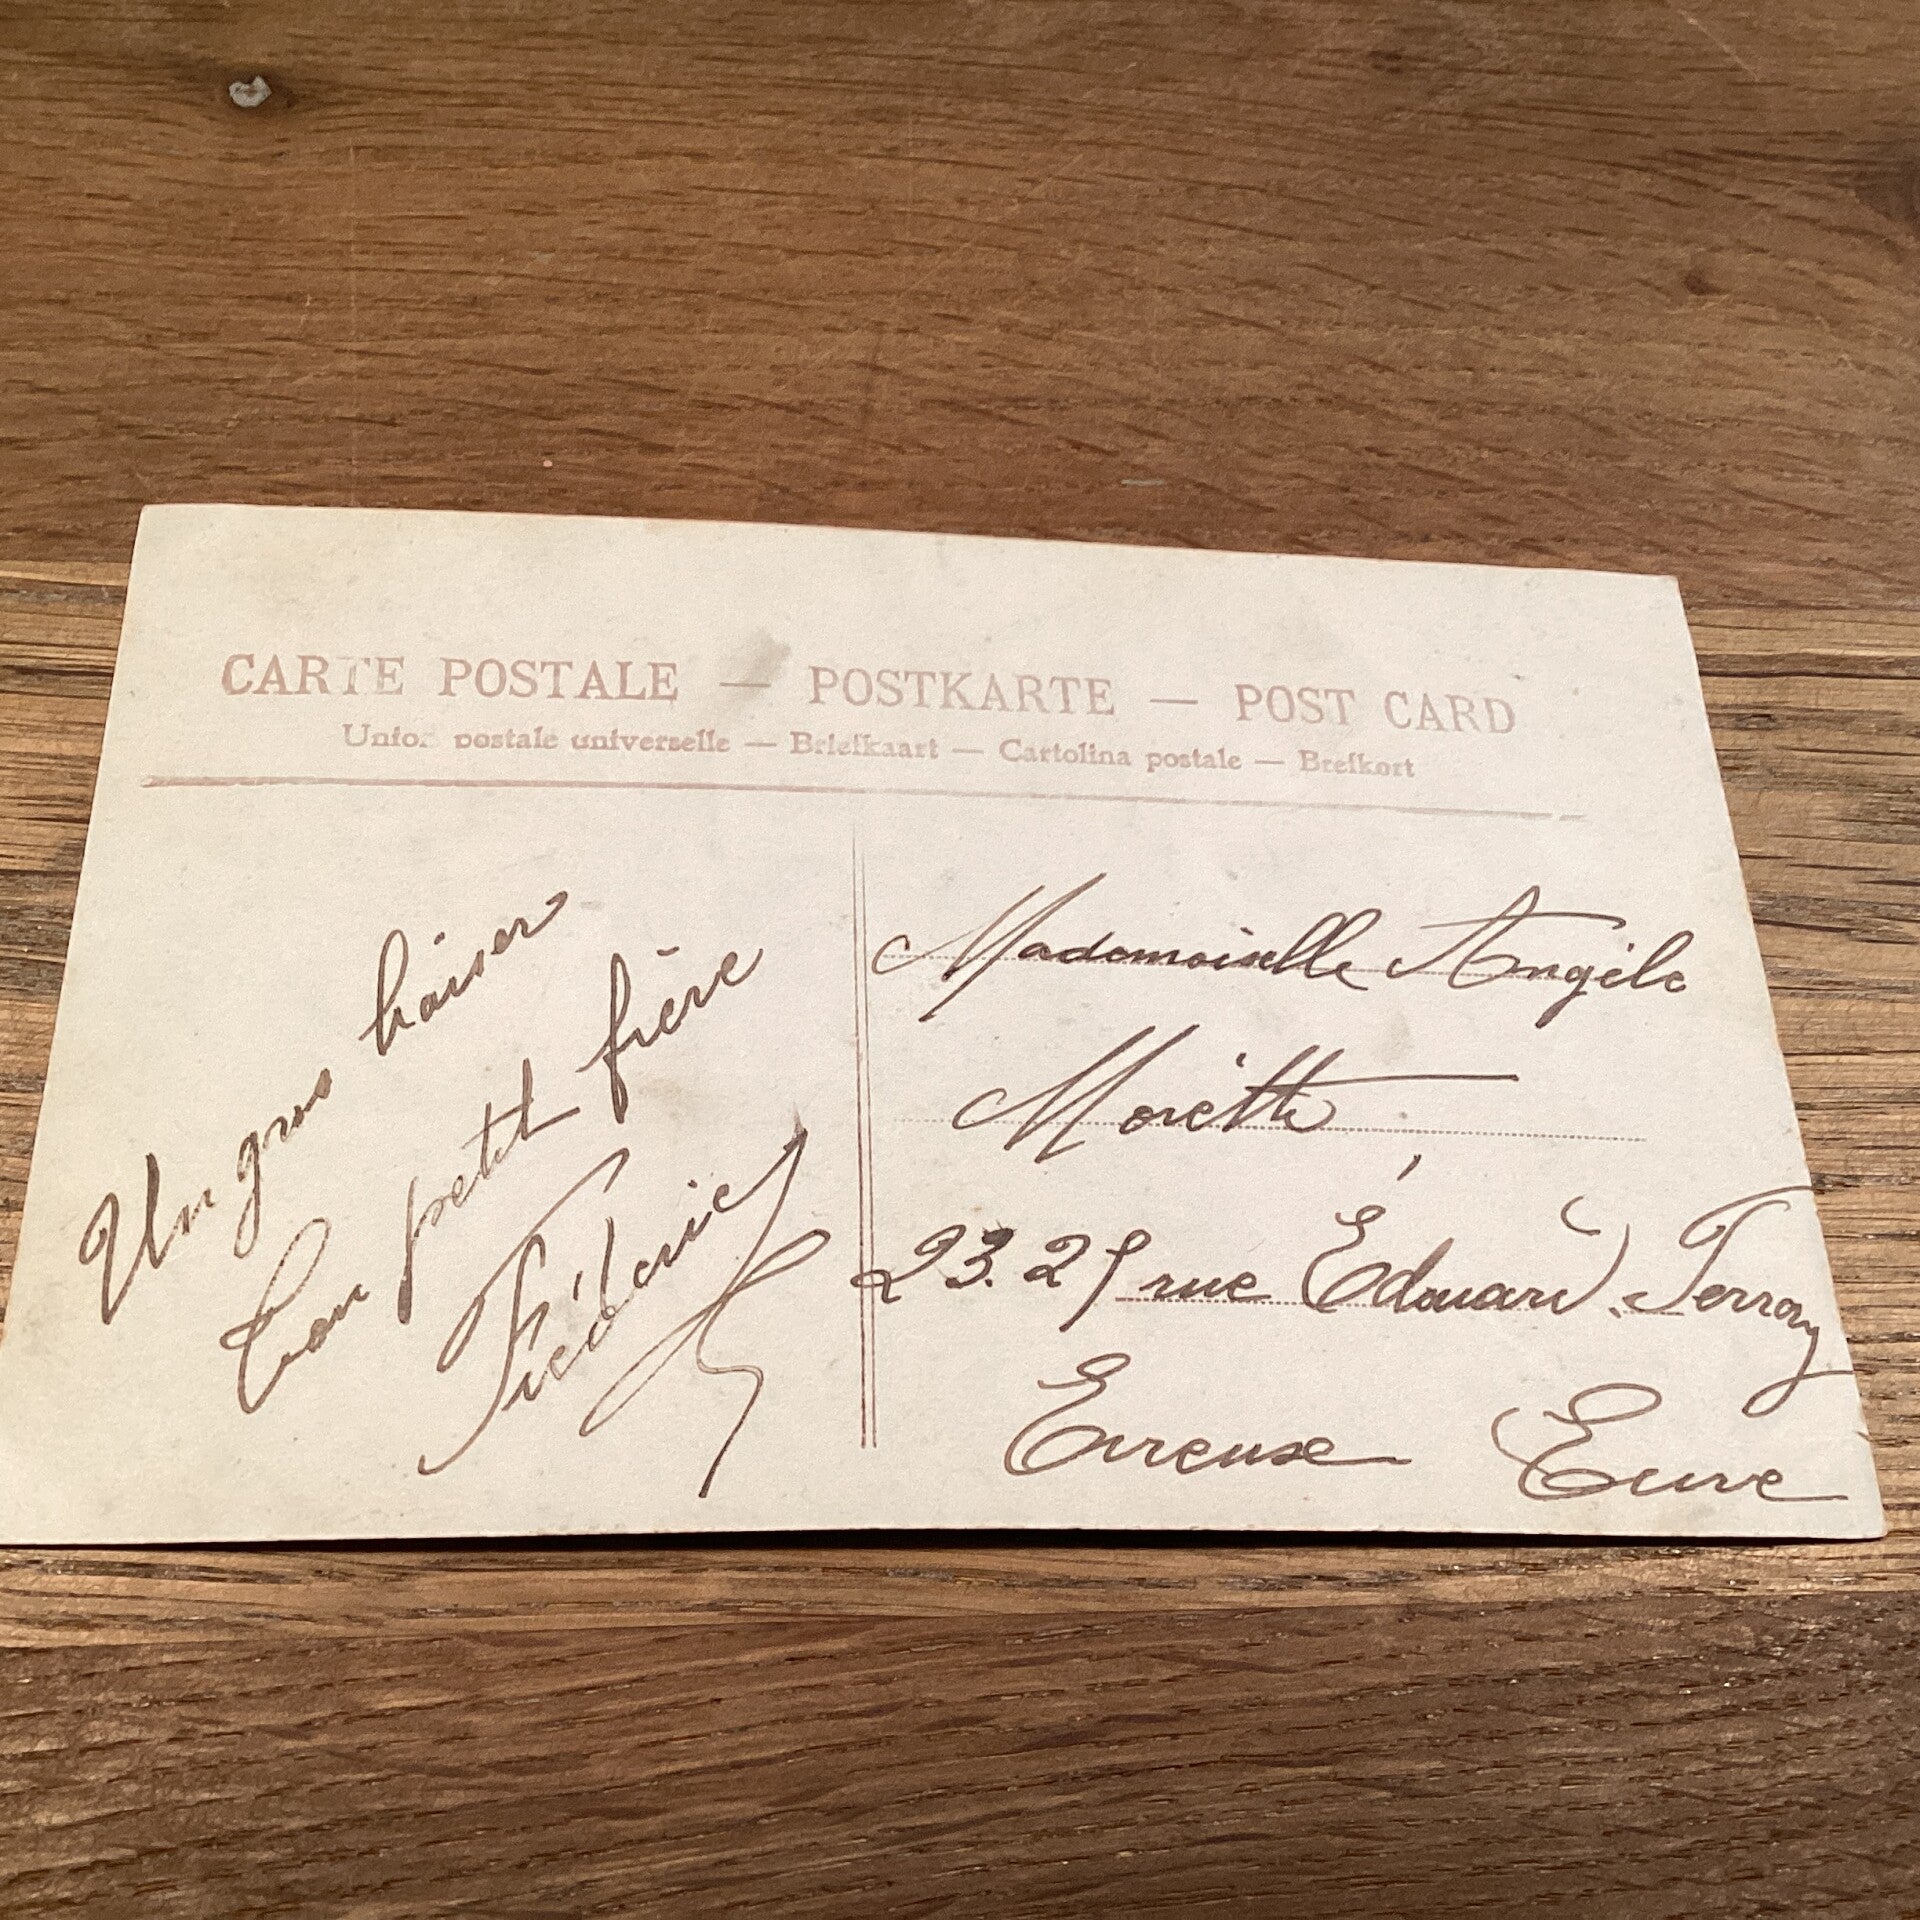 CARTE POSTALE — POSTKARTE — POST CARD
Union postale universelle — Briefkaart — Cartolina postale — Brefkort
Un gros baiser
Ton petit frère
Frédéric
Mademoiselle Angèle
Morette
23.25 rue Édouard. Ferray
Evreux Eure